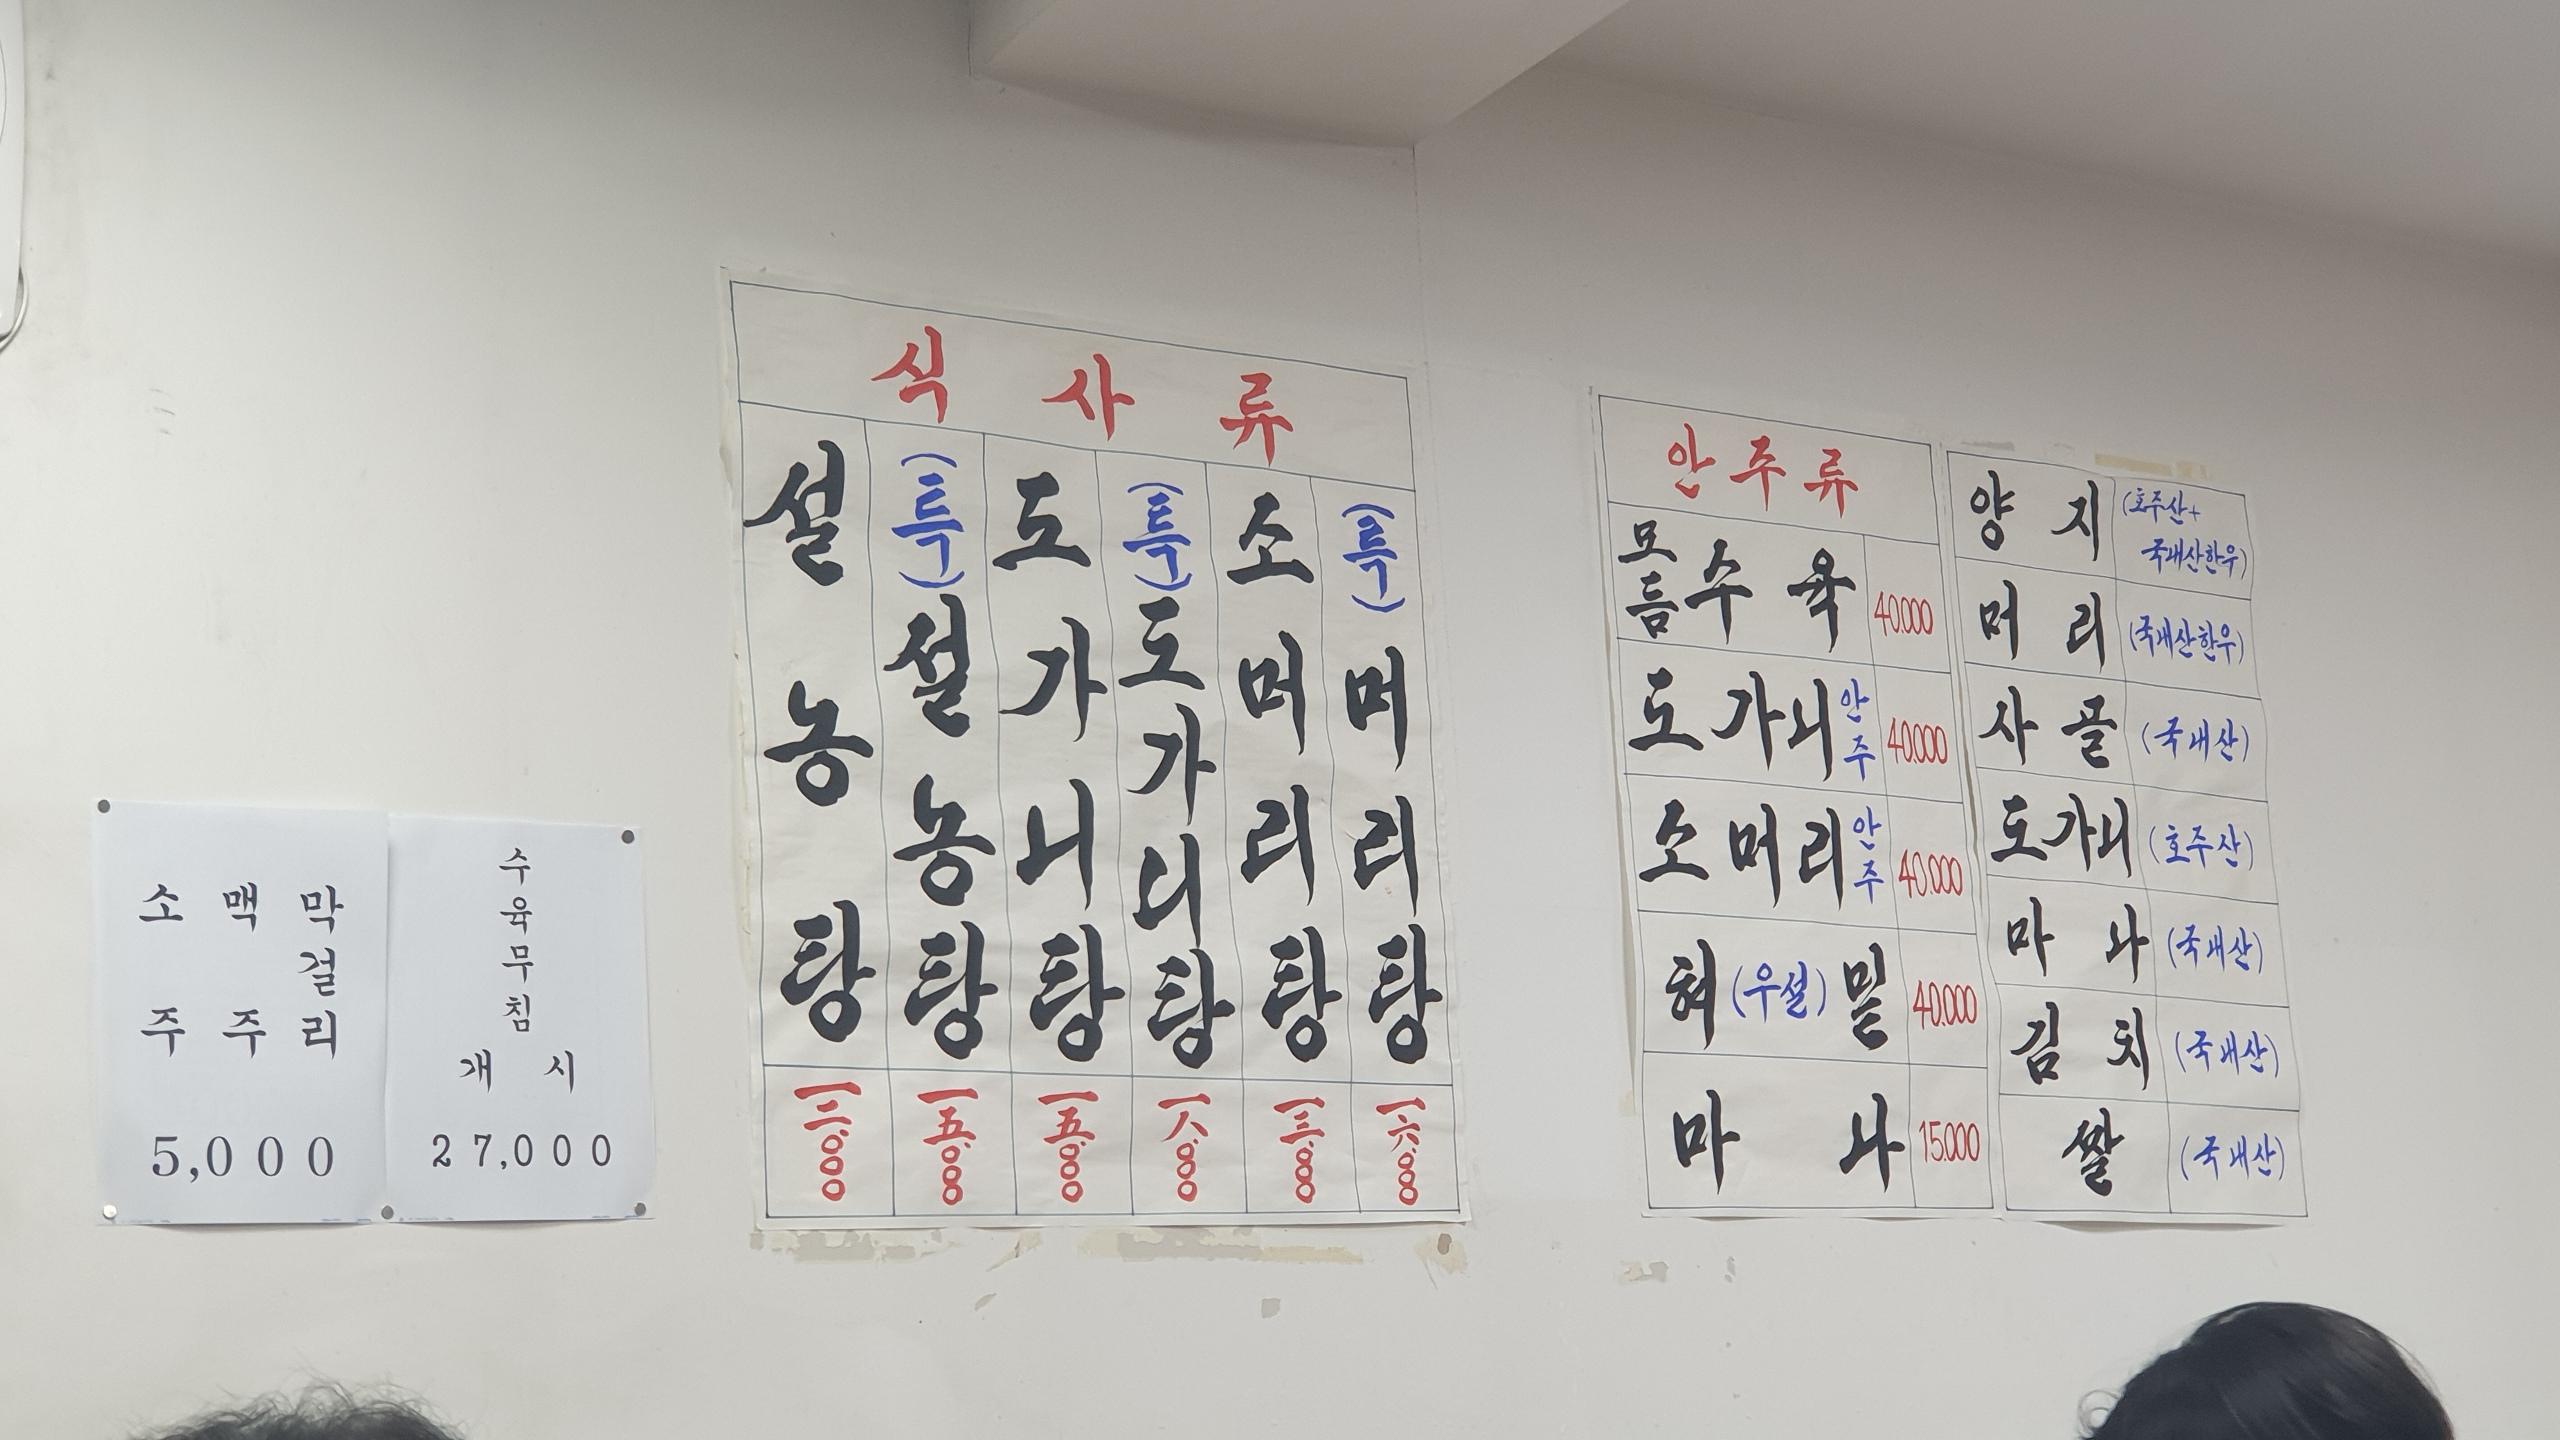 소주
맥주
막걸리
5,000
수육무침
개시
27,000
식사류
설농탕 一二.000
(특)설농탕 一五.000
도가니탕 一五.000
(특)도가니탕 一八.000
소머리탕 一三.000
(특)머리탕 一六.000
안주류
모듬수육 40.000
도가니안주 40.000
소머리안주 40.000
혀(우설)밑 40.000
마나 15.000
양지 (호주산+
국내산한우)
머리 (국내산한우)
사골 (국내산)
도가니 (호주산)
마나 (국내산)
김치 (국내산)
쌀 (국내산)